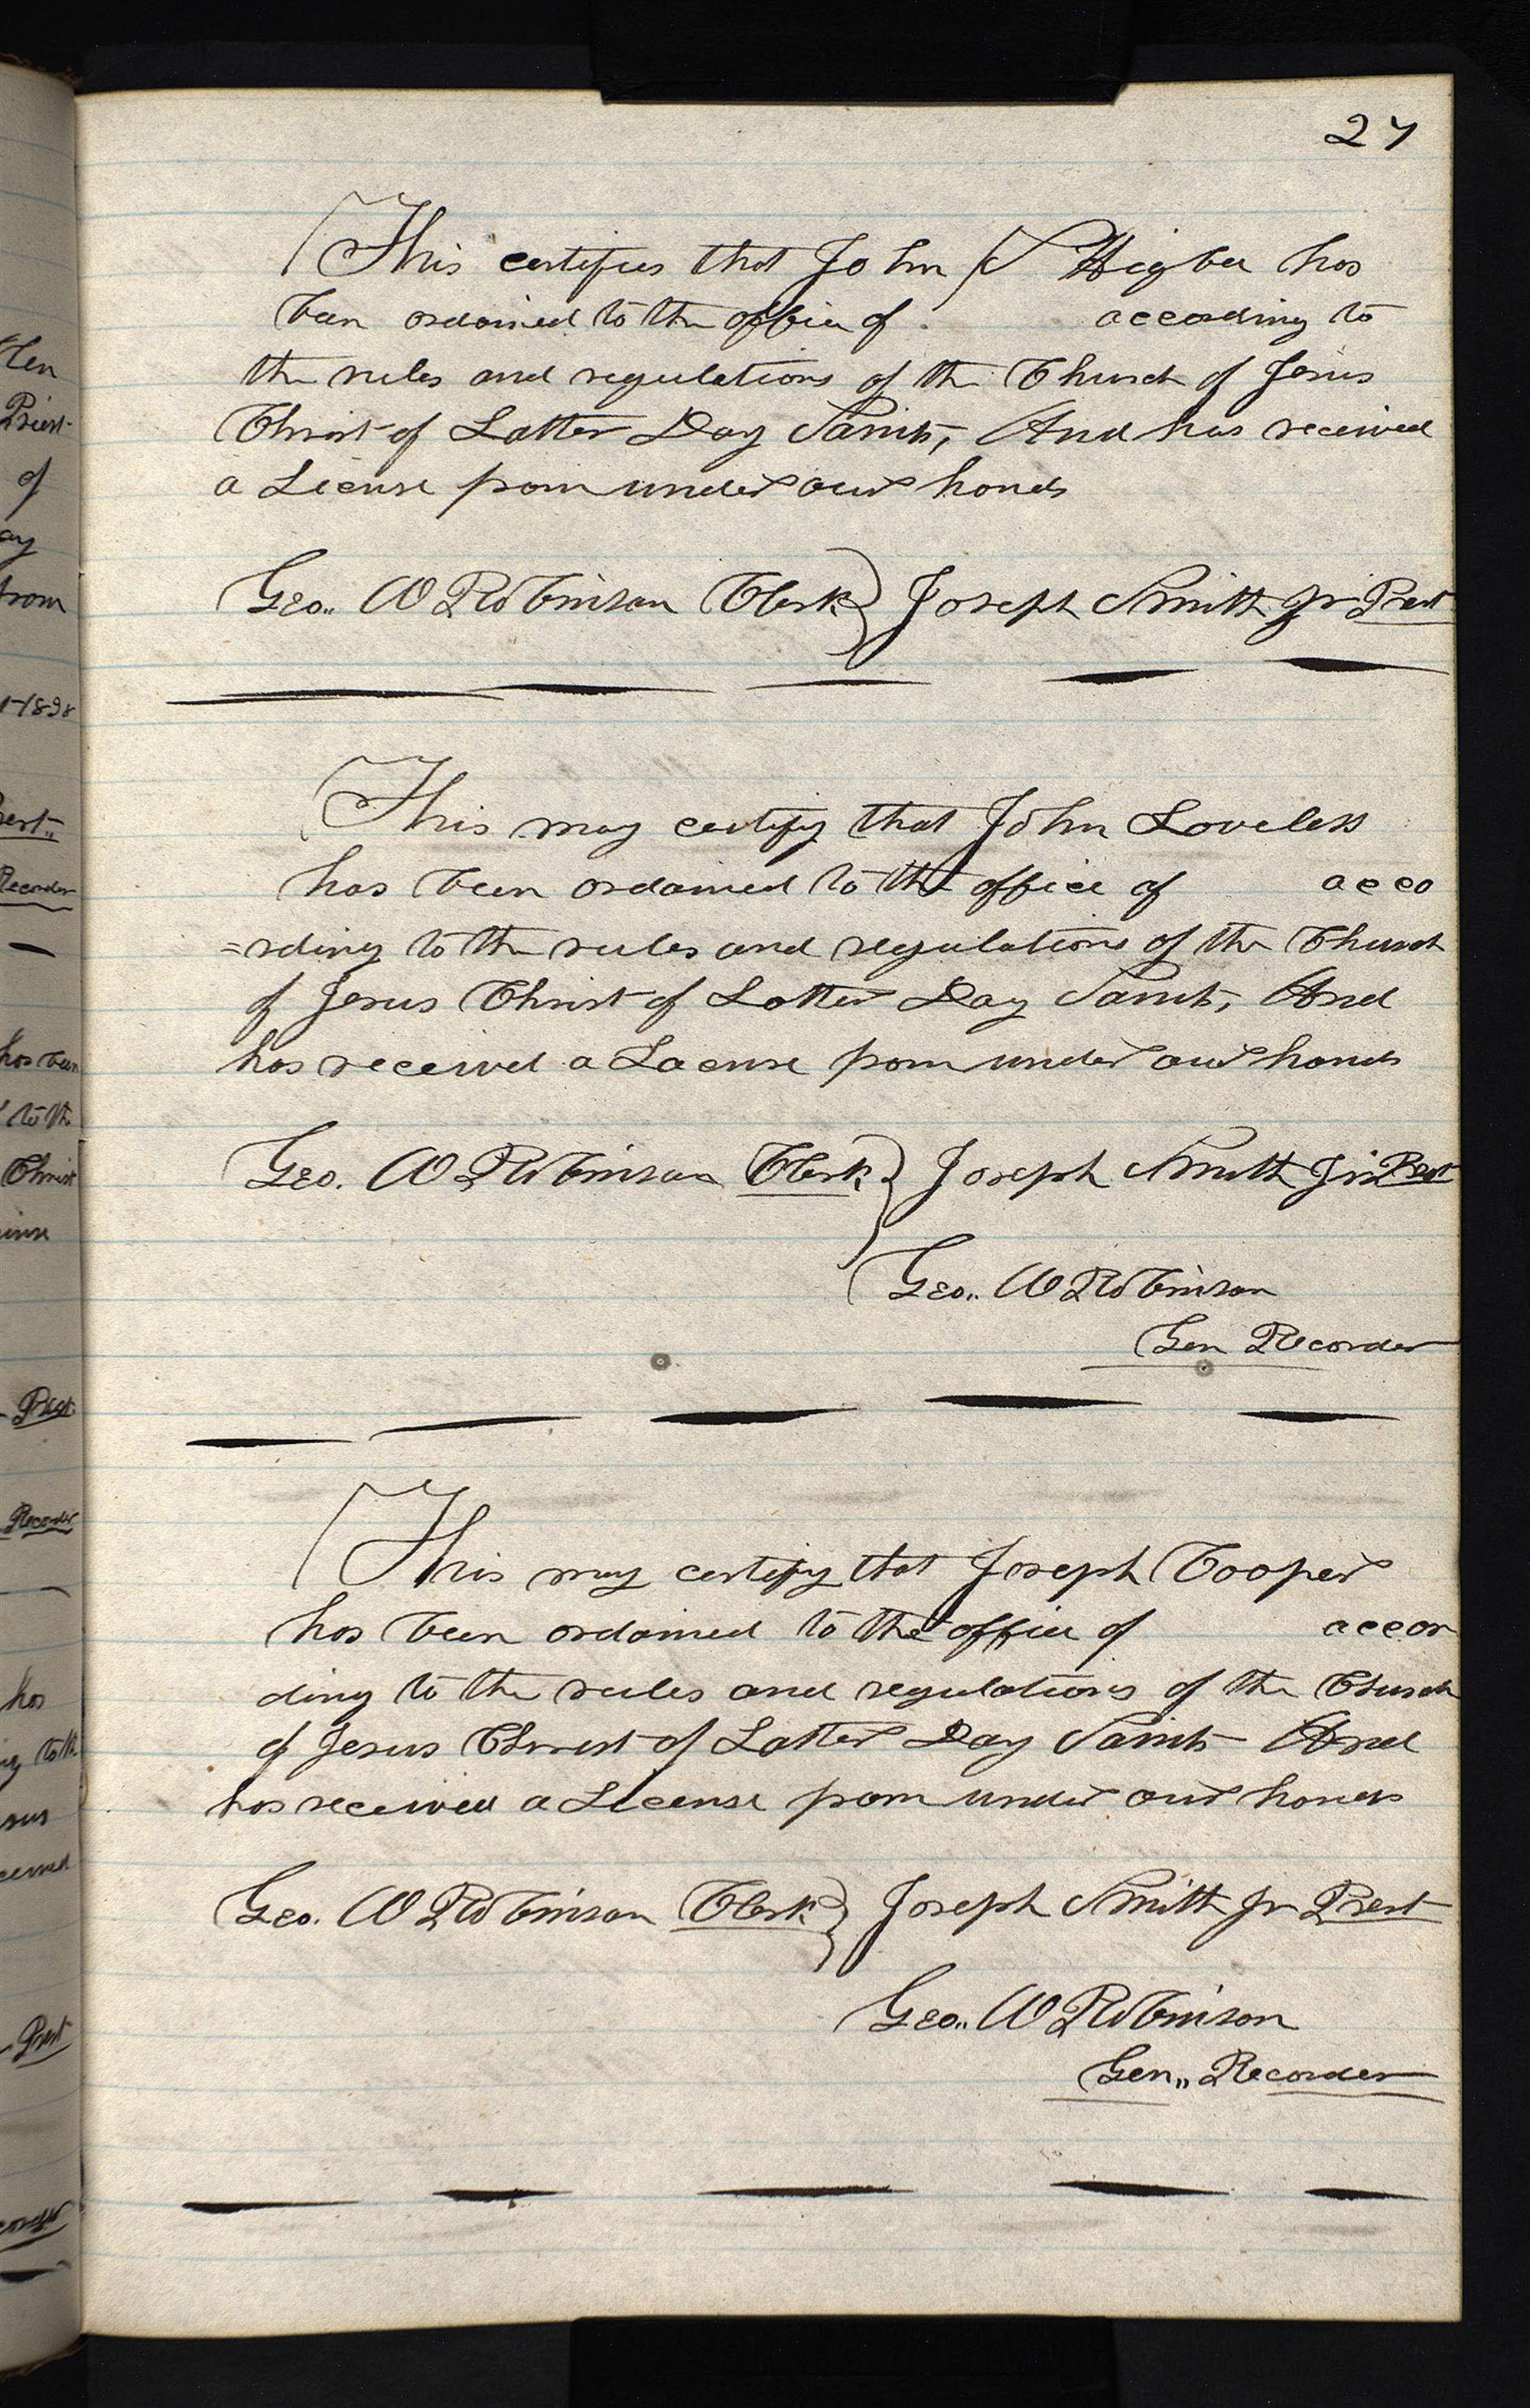 27
This certifies that John S Higbee has
been ordained to the office of according to
the rules and regulations of the Church of Jesus
Christ of Latter Day Saints, And has received
a License from under our hands
Geo.. W Robinson Clerk } Joseph Smith Jr Prest
This may certify that John Loveless
has been ordained to the office of acco
=rding to the rules and regulations of the Church
of Jesus Christ of Latter Day Saints, And
has received a Lacense from under our hands
Geo. W Robinson Clerk } Joseph Smith Jr Prest
Geo.. W Robinson
Gen Recorder
This may certify that Joseph Cooper
has been ordained to the office of accor
ding to the rules and regulations of the Church
of Jesus Christ of Latter Day Saints And
has received a License from under our hands
Geo. W Robinson Clerk } Joseph Smith Jr Prest
Geo.. W Robinson
Gen,, Recorder
Priest
of
from
Recorder
has been
to th
Christ
Prest
Recorder
has
Prest